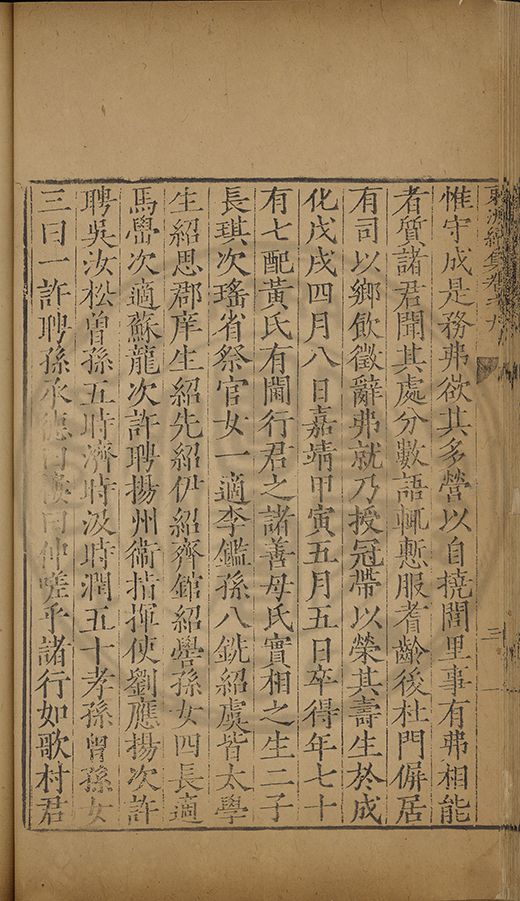 東洲續集卷十九
三
惟守成是務弗欲其多營以自撓閭里事有弗相能
者質諸君聞其處分數語輒慙服耆齡後杜門僻居
有司以鄉飲徵辭弗就乃授冠帶以榮其壽生於成
化戊戌四月八日嘉靖甲寅五月五日卒得年七十
有七配黃氏有閫行君之諸善母氏實相之生二子
長琪次瑤省祭官女一適李鑑孫八銑紹虞皆太學
生紹思郡庠生紹先紹伊紹齊錧紹嚳孫女四長適
馬嚳次適蘇龍次許聘揚州衛指揮使劉應揚次許
聘吳汝松曾孫五時濟時汲時潤五十孝孫曾孫女
三曰一許聘孫承德曰曰仲嗟乎諸行如歌村君